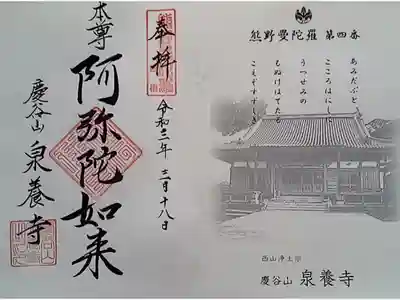 熊野曼陀羅 第四番
あみだぶと
こころはにし
うつせみの
もぬけはてたる
こえぞすずしき
西山浄土宗
慶谷山 泉養寺
奉拝
令和三年 三月 十八日
本尊
阿弥陀如来
慶谷山
泉養寺